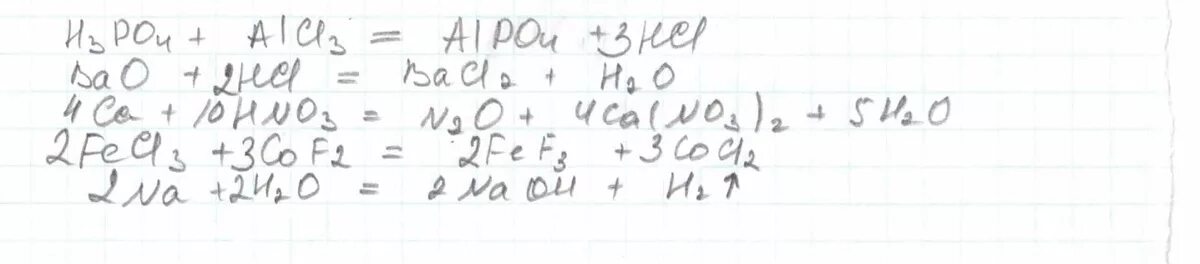 H₃PO₄ + AlCl₃ = AlPO₄ + 3HCl
BaO + 2HCl = BaCl₂ + H₂O
4Ca + 10HNO₃ = N₂O + 4Ca(NO₃)₂ + 5H₂O
2FeCl₃ + 3CoF₂ = 2FeF₃ + 3CoCl₂
2Na + 2H₂O = 2NaOH + H₂↑